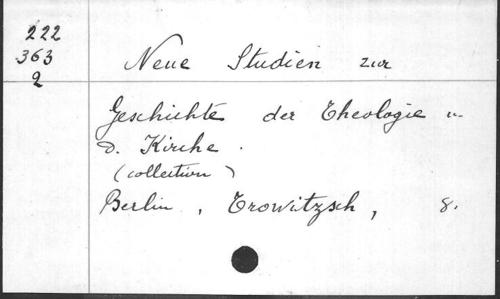 222
363
2
Neue Studien zur
Geschichte der Theologie u.
d. Kirche.
(collection)
Berlin, Trowitzsch, 8.